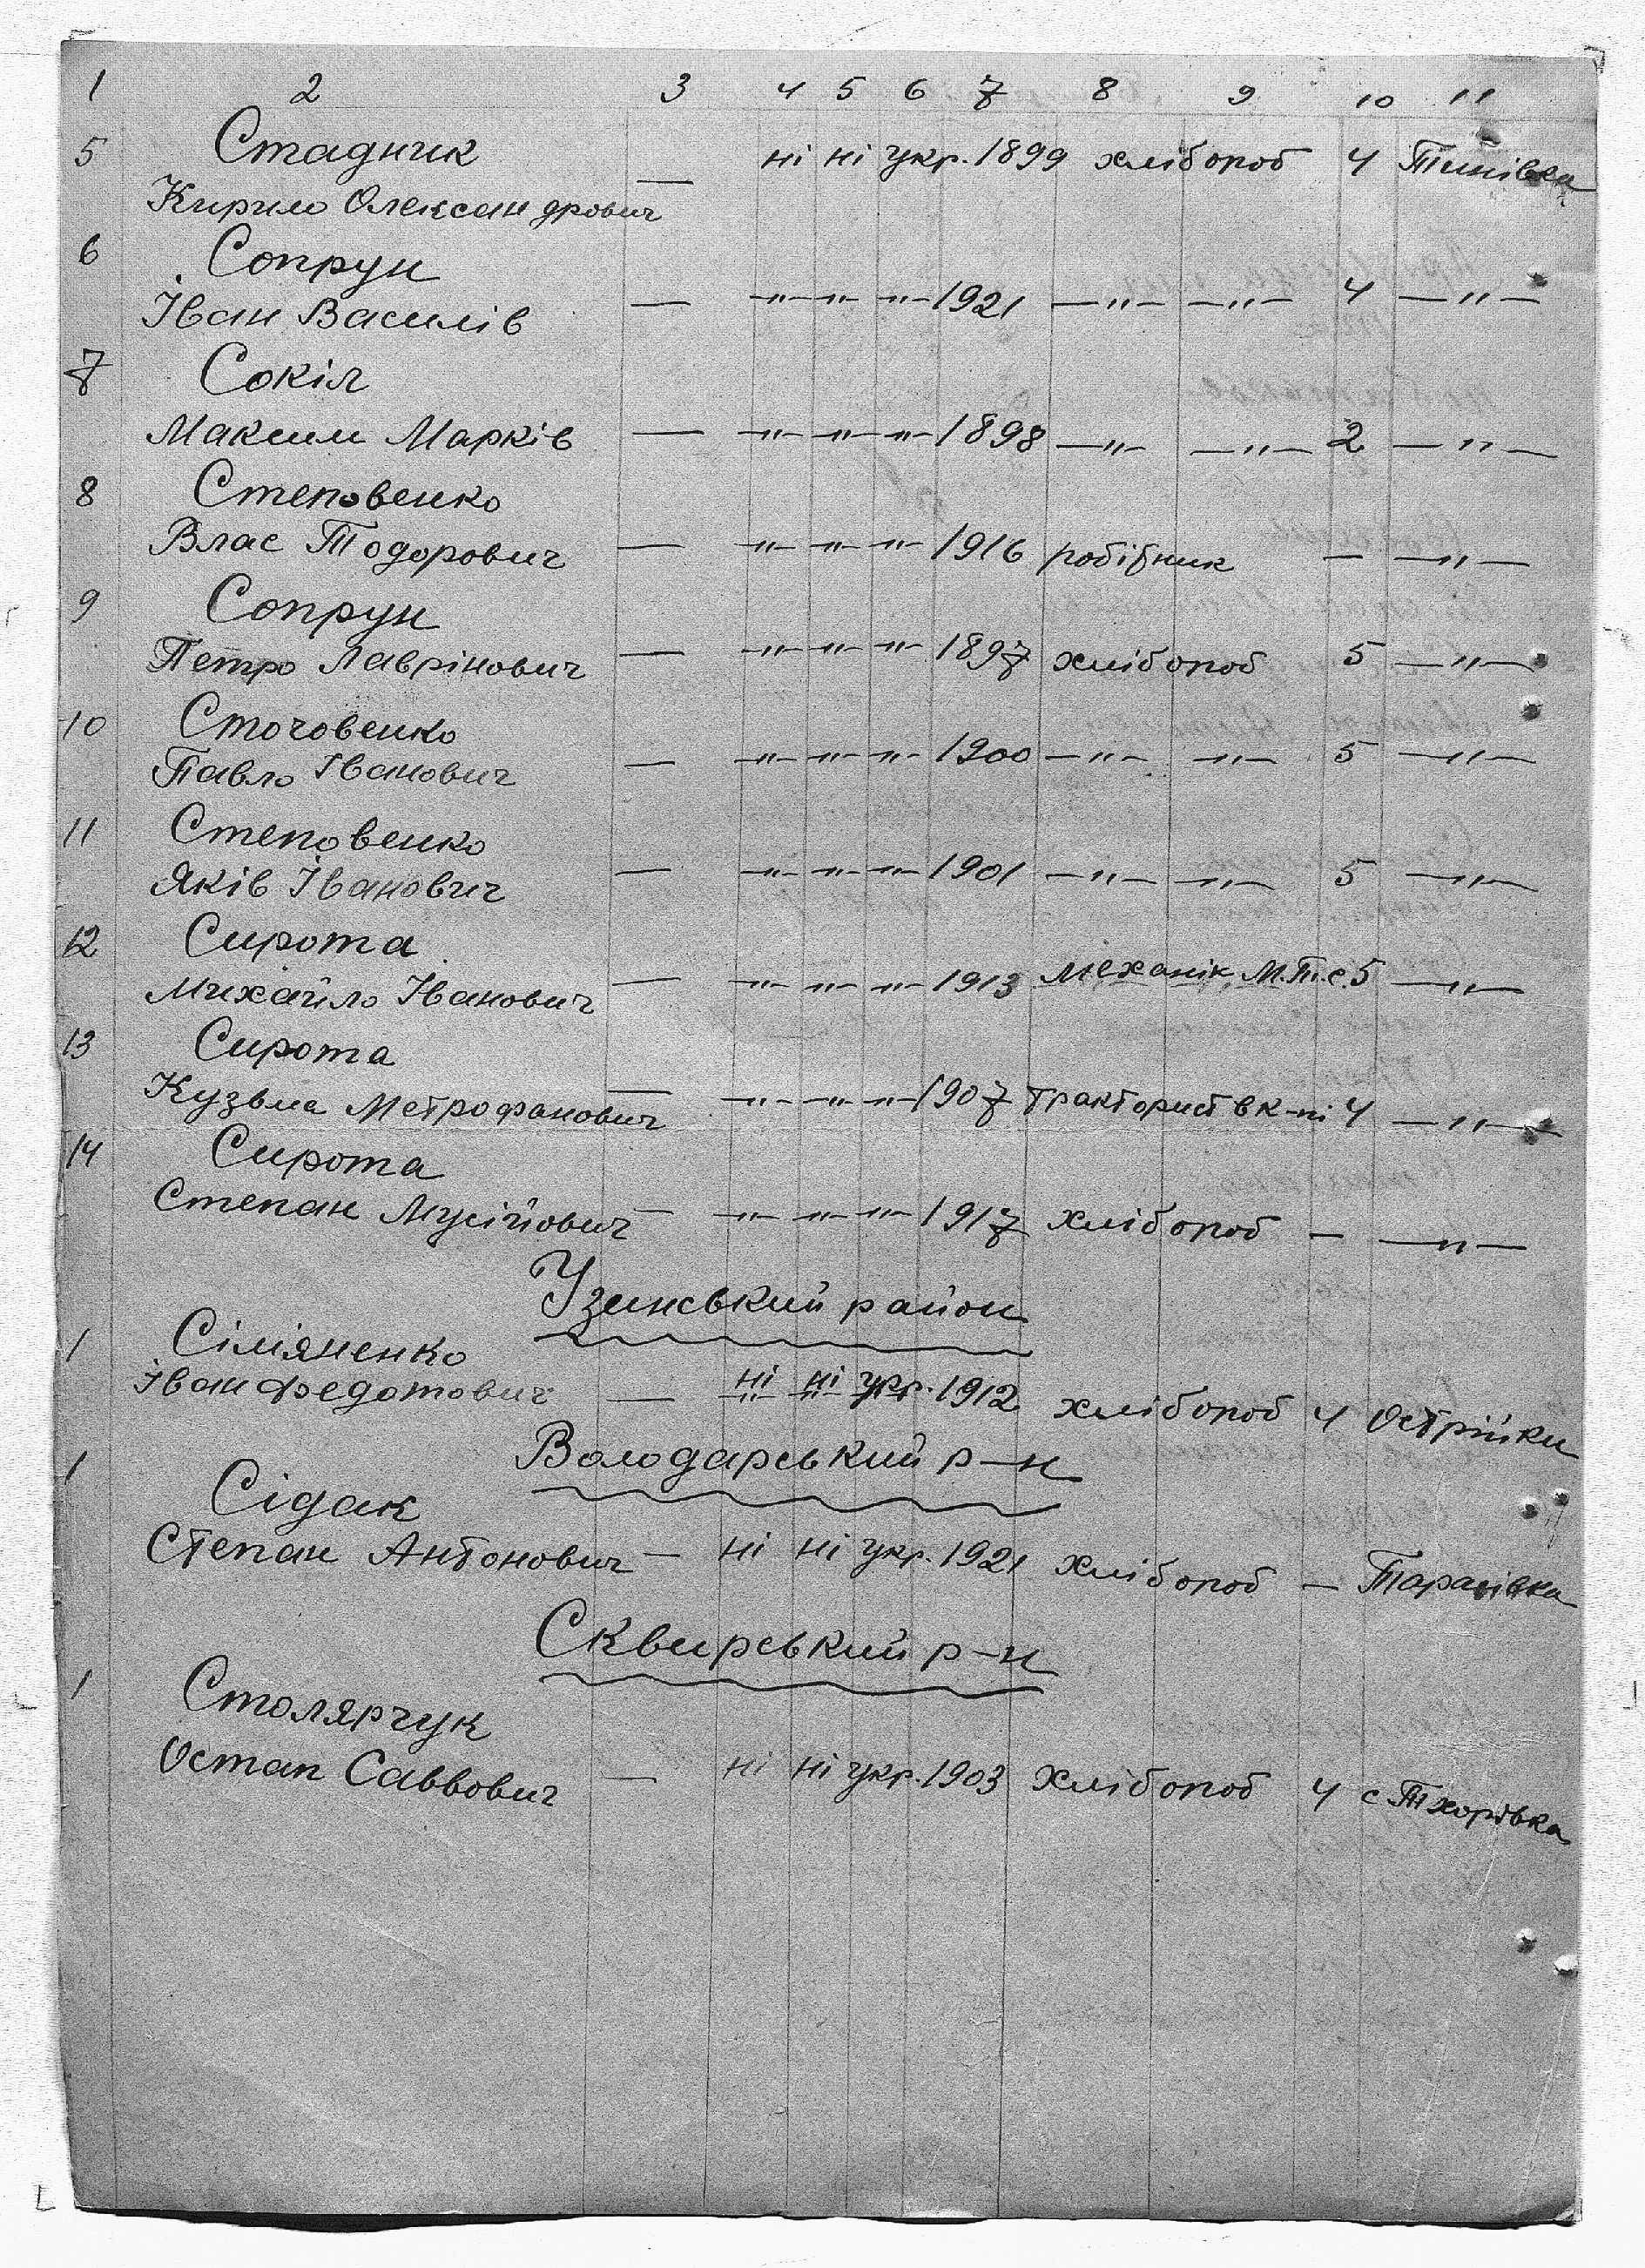 1 2 3 4 5 6 7 8 9 10 11
5 Стадник
— ні ні укр. 1899 хлібороб 4 Тинівка
Кирило Олександрович
6 Сопрун
Іван Василів — —"— —"— —"— 1921 —"— —"— 4 —"—
7 Сокіл
Максим Марків — —"— —"— —"— 1898 —"— —"— 2 —"—
8 Степовенко
Влас Тодорович — —"— —"— —"— 1916 робітник — —"—
9 Сопрун
Петро Лаврінович — —"— —"— —"— 1897 хлібороб 5 —"—
10 Стоговенко
Павло Іванович — —"— —"— —"— 1900 —"— —"— 5 —"—
11 Степовенко
Яків Іванович — —"— —"— —"— 1901 —"— —"— 5 —"—
12 Сирота
Михайло Іванович — —"— —"— —"— 1913 механік М.Т.С. 5 —"—
13 Сирота
Кузьма Метрофанович — —"— —"— —"— 1907 тракторист в к-пі 4 —"—
14 Сирота
Степан Мусійович — —"— —"— —"— 1917 хлібороб — —"—
Узинський район
1 Сіміяненко
Іван Федотович — ні ні укр. 1912 хлібороб 4 Острійки
Володарський р-н
1 Сідак
Степан Антонович — ні ні укр. 1921 хлібороб — Тарасівка
Сквирський р-н
1 Столярчук
Остап Саввович — ні ні укр. 1903 хлібороб 4 с Тхорівка